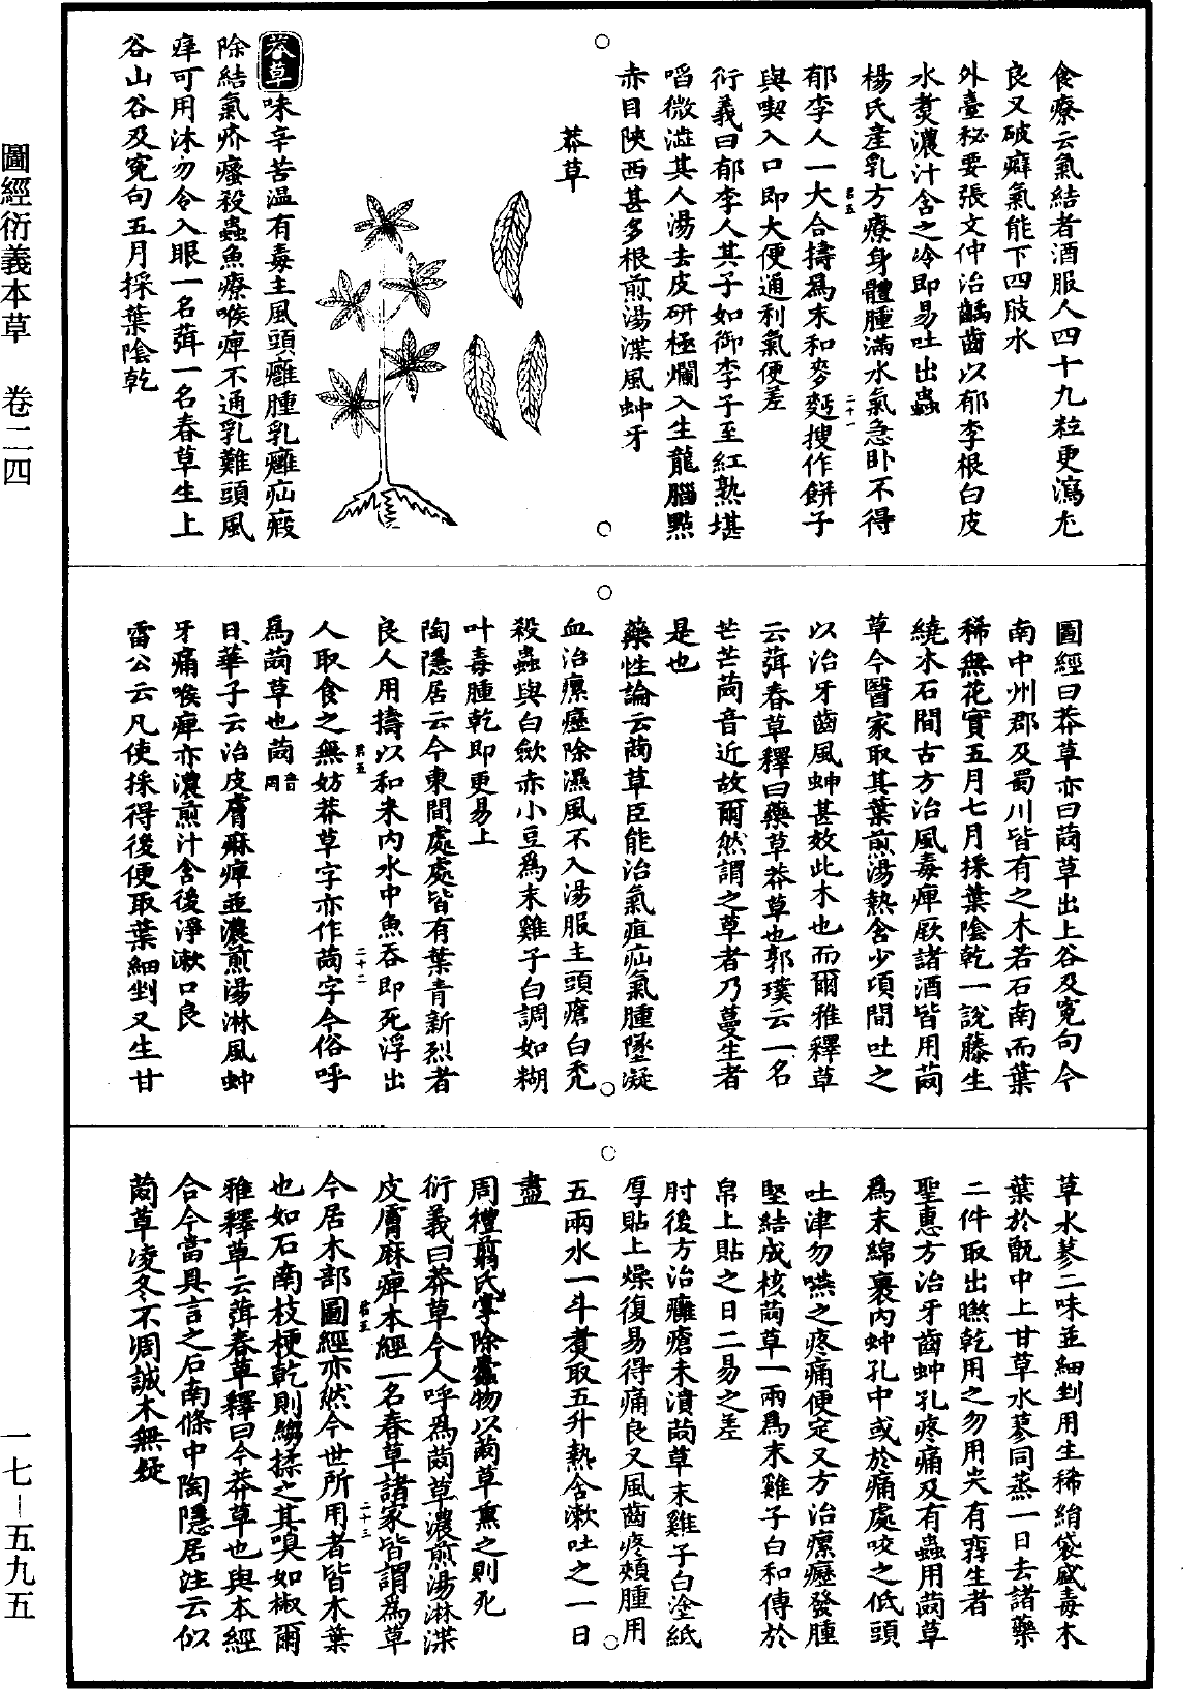 食療云氣結者酒服人四十九粒更瀉尤
良又破癖氣能下四肢水
外臺秘要張文仲治齲齒以郁李根白皮
水煑濃汁含之冷即易吐出蟲
楊氏產乳方療身體腫滿水氣急卧不得
郁李人一大合擣爲末和麥麪搜作餅子
與喫入口即大便通利氣便差
衍義曰郁李人其子如御李子至紅熟堪
啗微澁其人湯去皮研極爛入生龍腦點
赤目陝西甚多根煎湯渫風蚛牙
莽草
莽草味辛苦溫有毒主風頭癰腫乳癰疝瘕
除結氣疥瘙殺蟲魚療喉痺不通乳難頭風
痒可用沐勿令入眼一名葞一名春草生上
谷山谷及寃句五月採葉陰乾
圖經曰莽草亦曰䒽草出上谷及寃句今
南中州郡及蜀川皆有之木若石南而葉
稀無花實五月七月採葉陰乾一說藤生
繞木石間古方治風毒痺厥諸酒皆用䒽
草今醫家取其葉煎湯熱含少項間吐之
以治牙齒風蚛甚效此木也而爾雅釋草
云葞春草釋曰藥草莽草也郭璞云一名
芒芒䒽音近故爾然謂之草者乃蔓生者
是也
藥性論云䒽草臣能治氣疽疝氣腫墜凝
血治瘰癧除濕風不入湯服主頭瘡白禿
殺蟲與白歛赤小豆爲末雞子白調如糊
叶毒腫乾即更易上
陶隱居云今東間處處皆有葉青新烈者
良人用擣以和米內水中魚吞即死浮出
人取食之無妨莽草字亦作䒽字今俗呼
爲䒽草也䒽音罔
日華子云治皮膚痳痺並濃煎湯淋風蚛
牙痛喉痺亦濃煎汁含後淨漱口良
雷公云凡使採得後便取葉細剉又生甘
草水蓼二味並細剉用生稀絹袋盛毒木
葉於甑中上甘草水蓼同蒸一日去諸藥
二件取出㬠乾用之勿用尖有孿生者
聖惠方治牙齒蚛孔疼痛及有蟲用䒽草
爲末綿裹內蚛孔中或於痛處咬之低頭
吐津勿嚥之疼痛便定又方治瘰癧發腫
堅結成核䒽草一兩爲末雞子白和傅於
帛上貼之日二易之差
肘後方治癰瘡未潰䒽草末雞子白塗紙
厚貼上燥復易得痛良又風齒疼頰腫用
五兩水一斗煑取五升熱含漱吐之一日
盡
周禮翦氏掌除蠹物以䒽草熏之則死
衍義曰莽草今人呼爲䒽草濃煎湯淋渫
皮膚麻痺本經一名春草諸家皆謂爲草
今居木部圖經亦然今世所用者皆木葉
也如石南枝梗乾則縐揉之其嗅如椒爾
雅釋草云葞春草釋曰今莽草也與本經
合今當具言之石南條中陶隱居注云似
䒽草凌冬不凋誠木無疑
圖經衍義本草　卷二四
一七－五九五